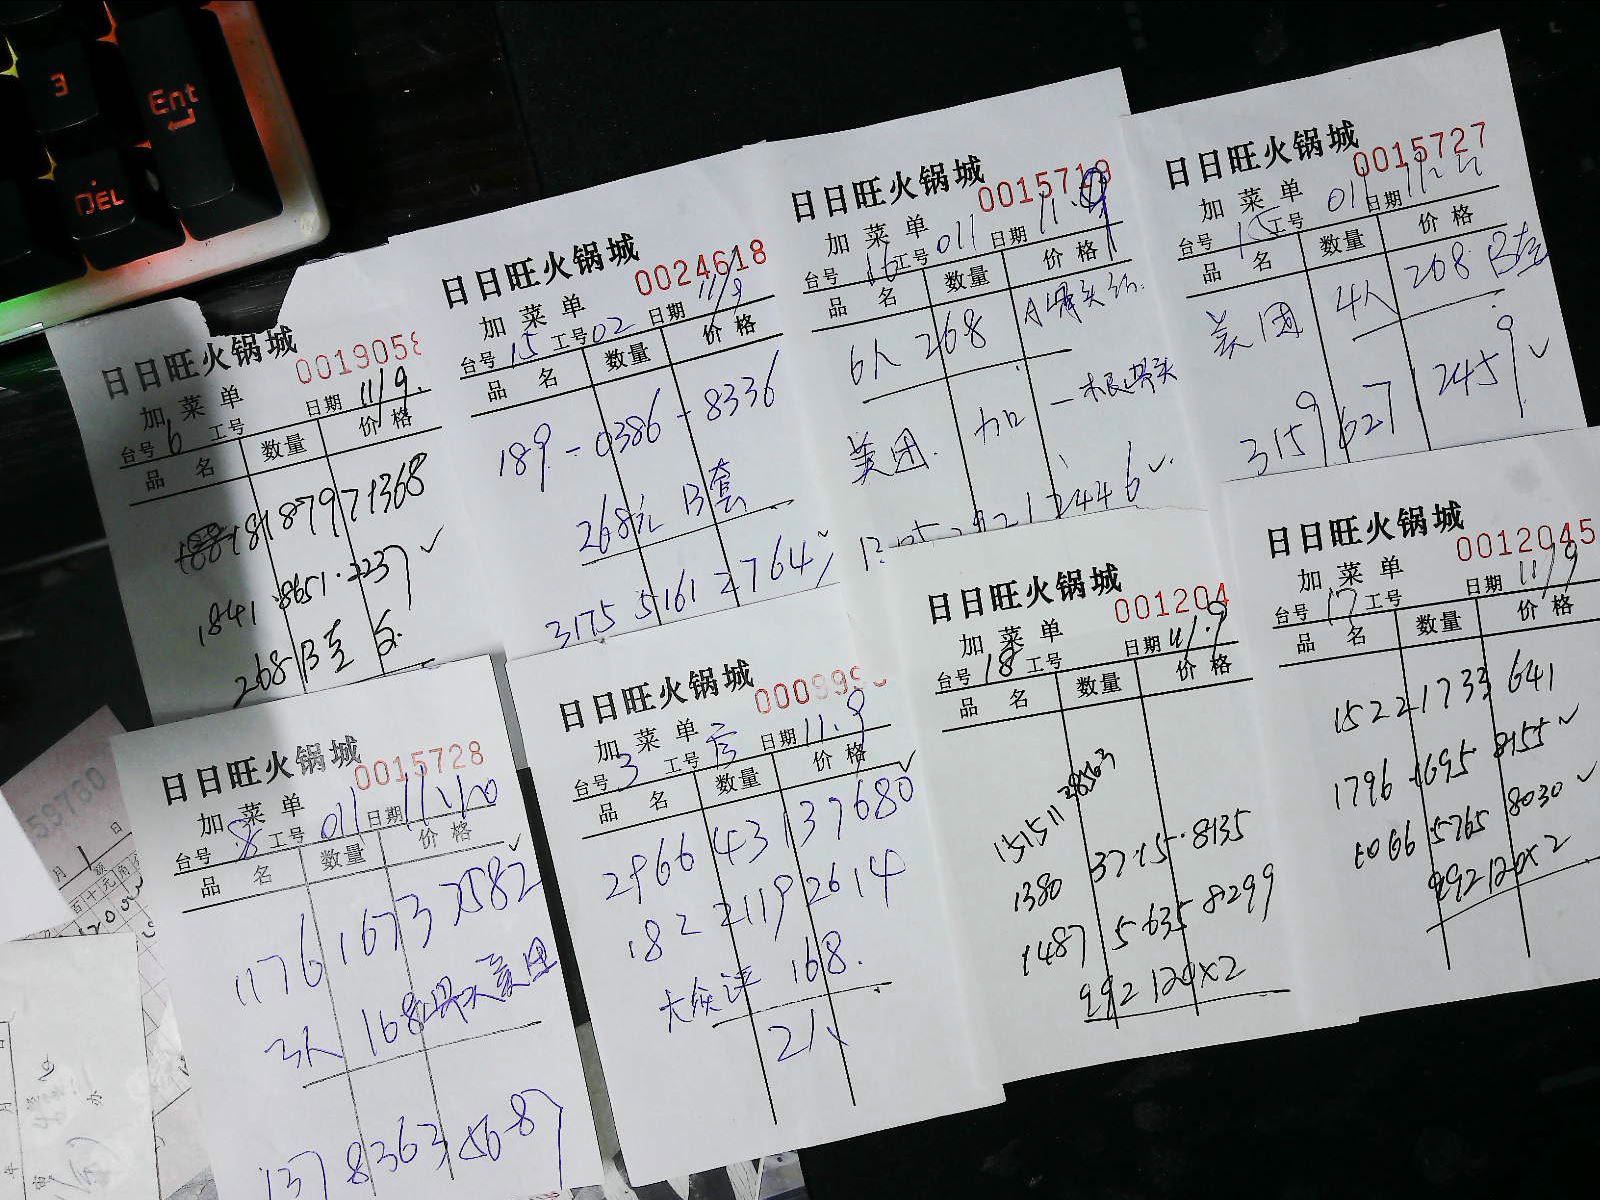 3
Ent
DEL
日日旺火锅城
0019058
加菜单
日期 11/9.
台号 6 工号
品名 数量 价格
18187971368
1841.8651.2237
268 B套
日日旺火锅城
0024618
加菜单
日期 11/9
台号 15 工号 02
品名 数量 价格
189-0386-8336
268元 B套
3175 5161 2764
日日旺火锅城
0015719
加菜单
台号 16 工号 011 日期 11.9
品名 数量 价格
6人 268 A骨头
加 一根骨头
美团.
日日旺火锅城
0015727
加菜单
台号 15 工号 011 日期
品名 数量 价格
美团 4人 268 B套
3159 627 12459
日日旺火锅城
0015728
加菜单
台号 8 工号 011 日期 11.10
品名 数量 价格
1176 1673 7582
3人 168 骨头 美团
137 8363 5687
日日旺火锅城
000999
加菜单
台号 3 工号 日期 11.9
品名 数量 价格
2966 431 37680
182 2119 2614
大众评 168.
2人
日日旺火锅城
001204
加菜单
日期 11.9
台号 18 工号
品名 数量 价格
1380 3715.8135
1487 5635 8299
292 120×2
日日旺火锅城
0012045
加菜单
日期 11/9
台号 17 工号
品名 数量 价格
1522 1733 641
1796 1695 8155
1066 5765 8030
292 120×2
59760